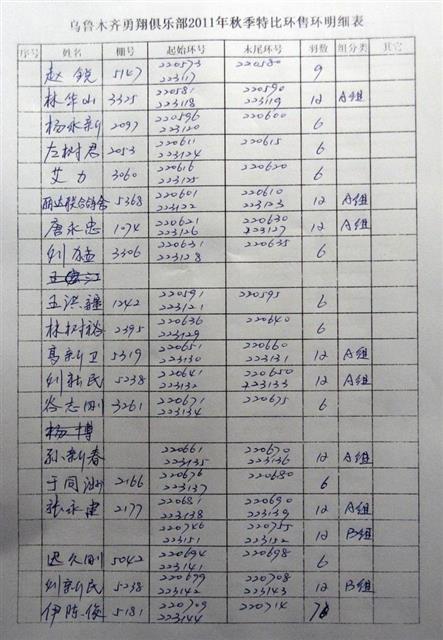 乌鲁木齐勇翔俱乐部2011年秋季特比环售环明细表
序号 姓名 棚号 起始环号 末尾环号 羽数 组分类 其它
赵锐 5147 220573 220580 9
223117
林华山 3325 220581 220590 12 A组
223118 223119
杨永新 2097 220596 220600 6
223120
左树君 2053 220611 220615 6
223124
艾力 3060 220616 220620 6
223125
丽达联合鸽舍 5368 220601 220610 12 A组
223122 223123
唐永忠 1074 220621 220630 12 A组
223126 223127
刘猛 3306 220631 220635 6
223128
王洪疆 1242 220591 220595 6
223121
林树裕 2395 220636 220640 6
223129
高新卫 5319 220651 220660 12 A组
223130 223131
刘新民 5238 220641 220650 12 A组
223132 223133
谷志刚 3261 220671 220675 6
223134
杨博
孙新春 220661 220670 12 A组
223135 223136
于同洲 2166 220676 220680 6
223137
张永建 2177 220681 220690 12 A组
223138 223139
220746 220755 12 B组
223151 223152
迟久刚 5042 220694 220698 6
223141
刘新民 5238 220679 220708 12 B组
223142 223143
伊陈俊 5181 220709 220714 7
223144